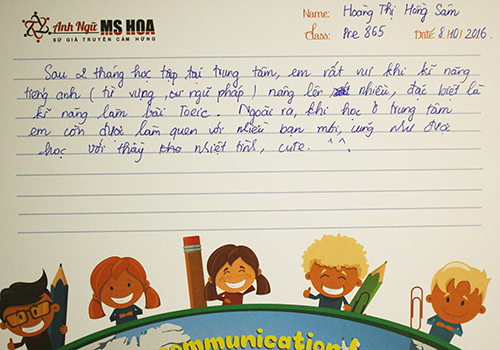 Anh Ngữ MS HOA
SỨ GIẢ TRUYỀN CẢM HỨNG
Name: Hoàng Thị Hồng Sâm
Class: Pre 865 Date: 8.M01.2016.
Sau 2 tháng học tập tại trung tâm, em rất vui khi kĩ năng
tiếng anh ( từ vựng , ngữ pháp ) nâng lên nhiều, đặc biệt là
kĩ năng làm bài Toeic. Ngoài ra, khi học ở trung tâm
em còn được làm quen với nhiều bạn mới, cũng như được
học với thầy nhiệt tình, cute. ^^.
communication